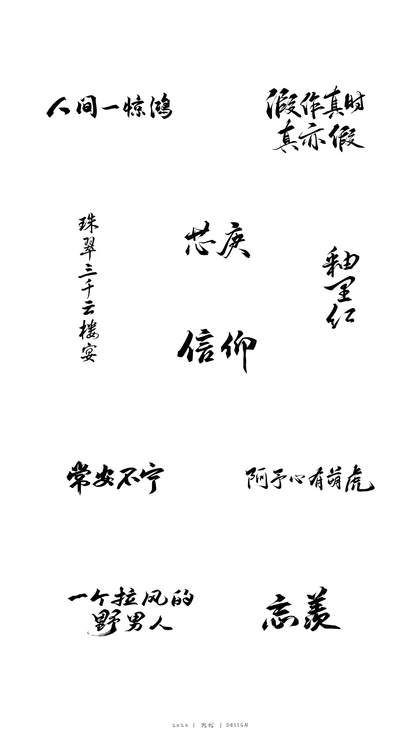 人间一惊鸿
假作真时
真亦假
珠翠三千云楼宴
釉里红
信仰
常安不宁
阿予心有萌虎
一个拉风的
野男人
忘羡
2020 | | DESIGN